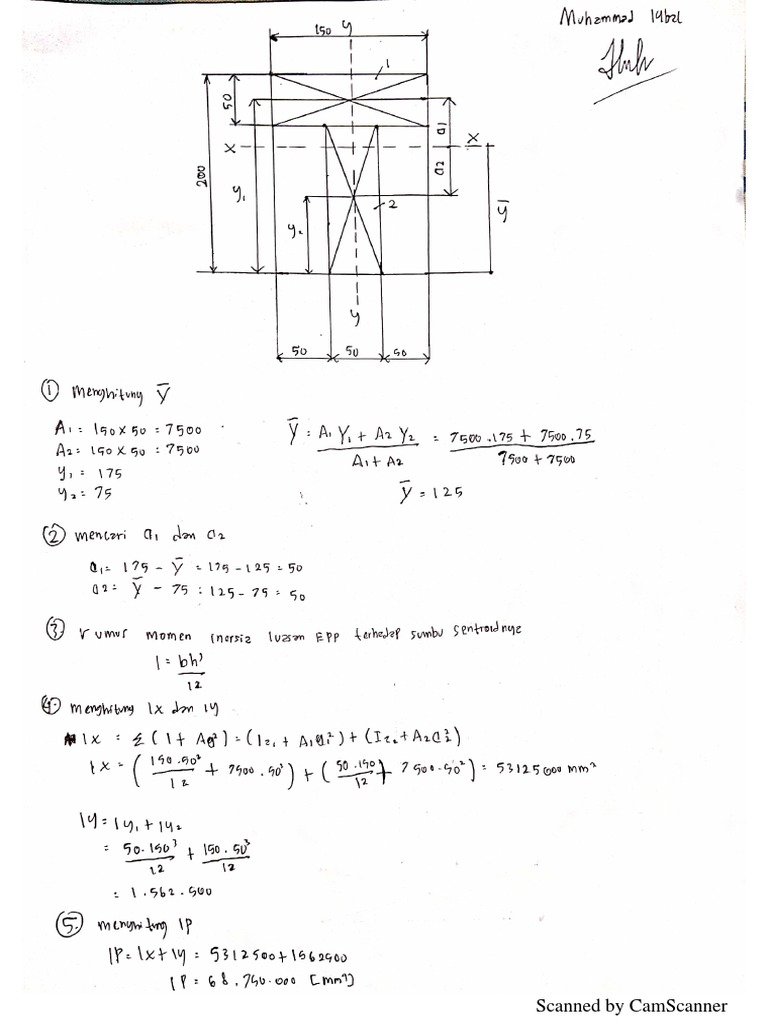 Muhammad Iqbal
150
y
1
50
a1
X
X
200
y1
a2
ȳ
2
y2
y
50
50
50
① menghitung ȳ
A1 = 150 x 50 = 7500
A2 = 150 x 50 = 7500
y1 = 175
y2 = 75
ȳ = A1 Y1 + A2 Y2 / A1 + A2 = 7500 . 175 + 7500 . 75 / 7500 + 7500
ȳ = 125
② mencari a1 dan a2
a1 = 175 - ȳ = 175 - 125 = 50
a2 = ȳ - 75 : 125 - 75 = 50
③ rumus momen inersia luasan EPP terhadap sumbu sentroidnya
I = bh³ / 12
④ menghitung Ix dan Iy
Ix = Σ ( I + Aa²) = (Iz1 + A1a1²) + (Iz2 + A2a2²)
Ix = ( 150 . 50³ / 12 + 7500 . 50² ) + ( 50 . 150 / 12 + 7500 . 50² ) = 53125000 mm⁴
Iy = Iy1 + Iy2
= 50 . 150³ / 12 + 150 . 50³ / 12
= 1.562.500
⑤ menghitung IP
IP = Ix + Iy = 5312500 + 1562500
IP = 68.750.000 [mm⁴]
Scanned by CamScanner